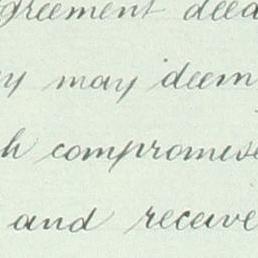 agreement deed
may deem
compromise
and receive